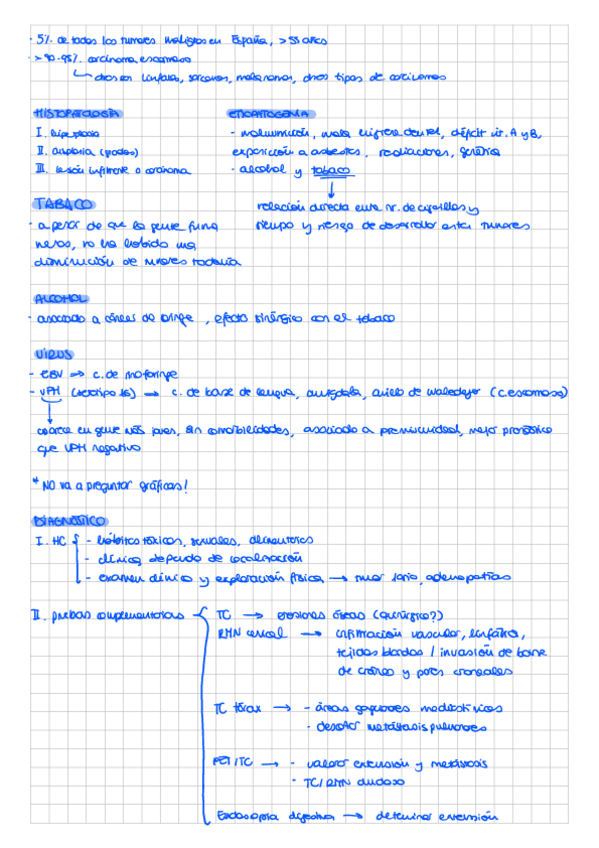 - 5% de todos los tumores malignos en España, > 55 años
- > 90-95% carcinoma escamoso
otros son linfoma, sarcomas, melanomas, otros tipos de carcinomas
HISTOPATOLOGÍA
I. hiperplasia
II. displasia (grados)
III. lesión infiltrante o carcinoma
ETIOPATOGENIA
- malnutrición, mala higiene dental, déficit vit. A y B,
exposición a asbestos, radiaciones, genética
- alcohol y tabaco
relación directa entre nr. de cigarrillos y
tiempo y riesgo de desarrollar estos tumores
TABACO
- a pesar de que la gente fuma
menos, no ha habido una
disminución de tumores todavía
ALCOHOL
- asociado a cáncer de laringe, efecto sinérgico con el tabaco
VIRUS
- EBV → c. de nasofaringe
- VPH (serotipo 16) → c. de base de lengua, amígdala, anillo de waldeyer (c. escamoso)
ocurre en gente más joven, sin comorbilidades, asociado a promiscuidad, mejor pronóstico
que VPH negativo
* NO va a preguntar gráficas!
DIAGNÓSTICO
I. HC - hábitos tóxicos, sexuales, alimentarios
- clínica depende de localización
- examen clínico y exploración física → tumor 1ario, adenopatías
II. pruebas complementarias
TC → erosiones óseas (quirúrgico?)
RMN cervical → infiltración vascular, linfática,
tejidos blandos / invasión de base
de cráneo y pares craneales
TC tórax → - áreas ganglionares mediastínicas
- descartar metástasis pulmonares
PET/TC → - valorar extensión y metástasis
- TC/RMN dudoso
Endoscopia digestiva → determinar extensión